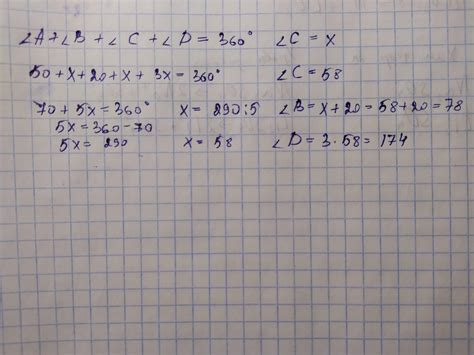 ∠A+∠B+∠C+∠D=360° ∠C=x
50+x+20+x+3x=360° ∠C=58
70+5x=360° x=290:5 ∠B=x+20=58+20=78
5x=360-70
5x=290 x=58 ∠D=3·58=174